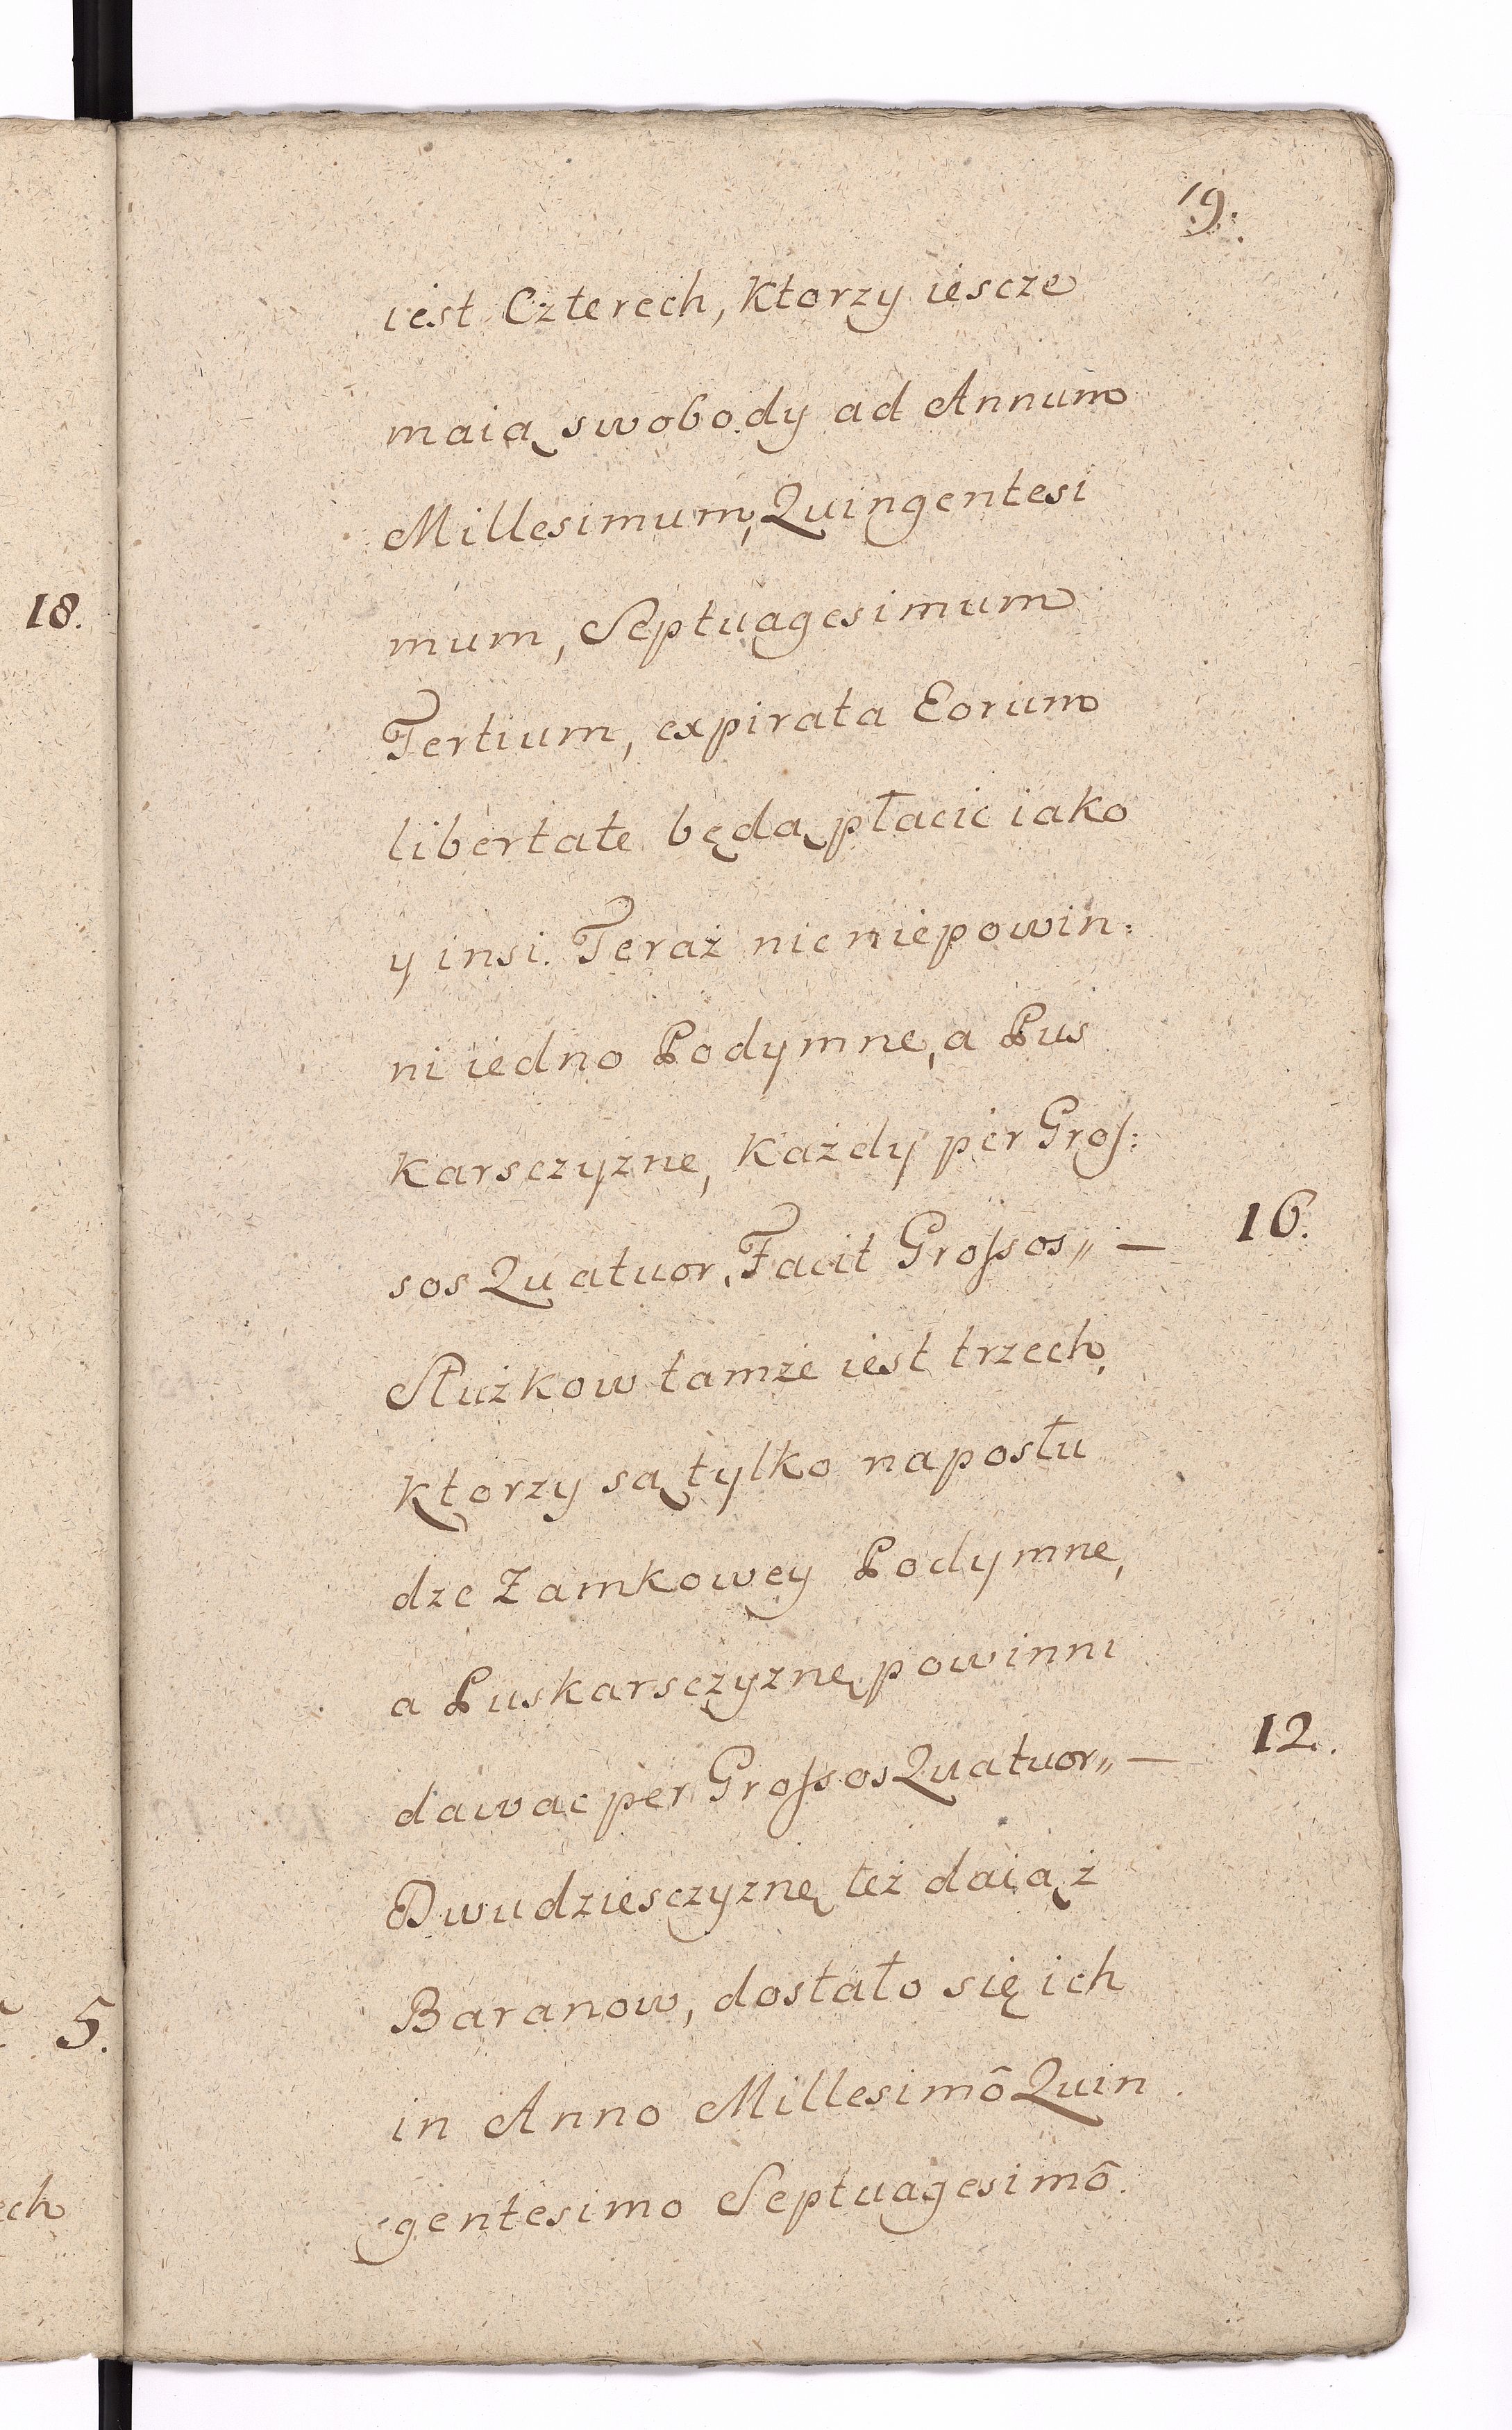 19.
iest Czterech, Ktorzy iescze
maią swobody ad Annum
Millesimum, Quingentesi
mum, Septuagesimum
Tertium, expirata Eorum
libertate będą płacic iako
y insi. Teraz nic niepowin:
ni iedno Podymne, a Pus
karsczyzne, Każdy per Gros:
sos Quatuor. Facit Grossos„ — 16.
Służkow tamże iest trzech,
ktorzy są tylko naposłu
dze Zamkowey Podymne,
a Puskarsczyznę powinni
dawac per Grossos Quatuor„ — 12.
Dwudziesczyznę też daią ż
Baranow, dostało się ich
in Anno Millesimô Quin
gentesimo Septuagesimô.
18.
5.
ech